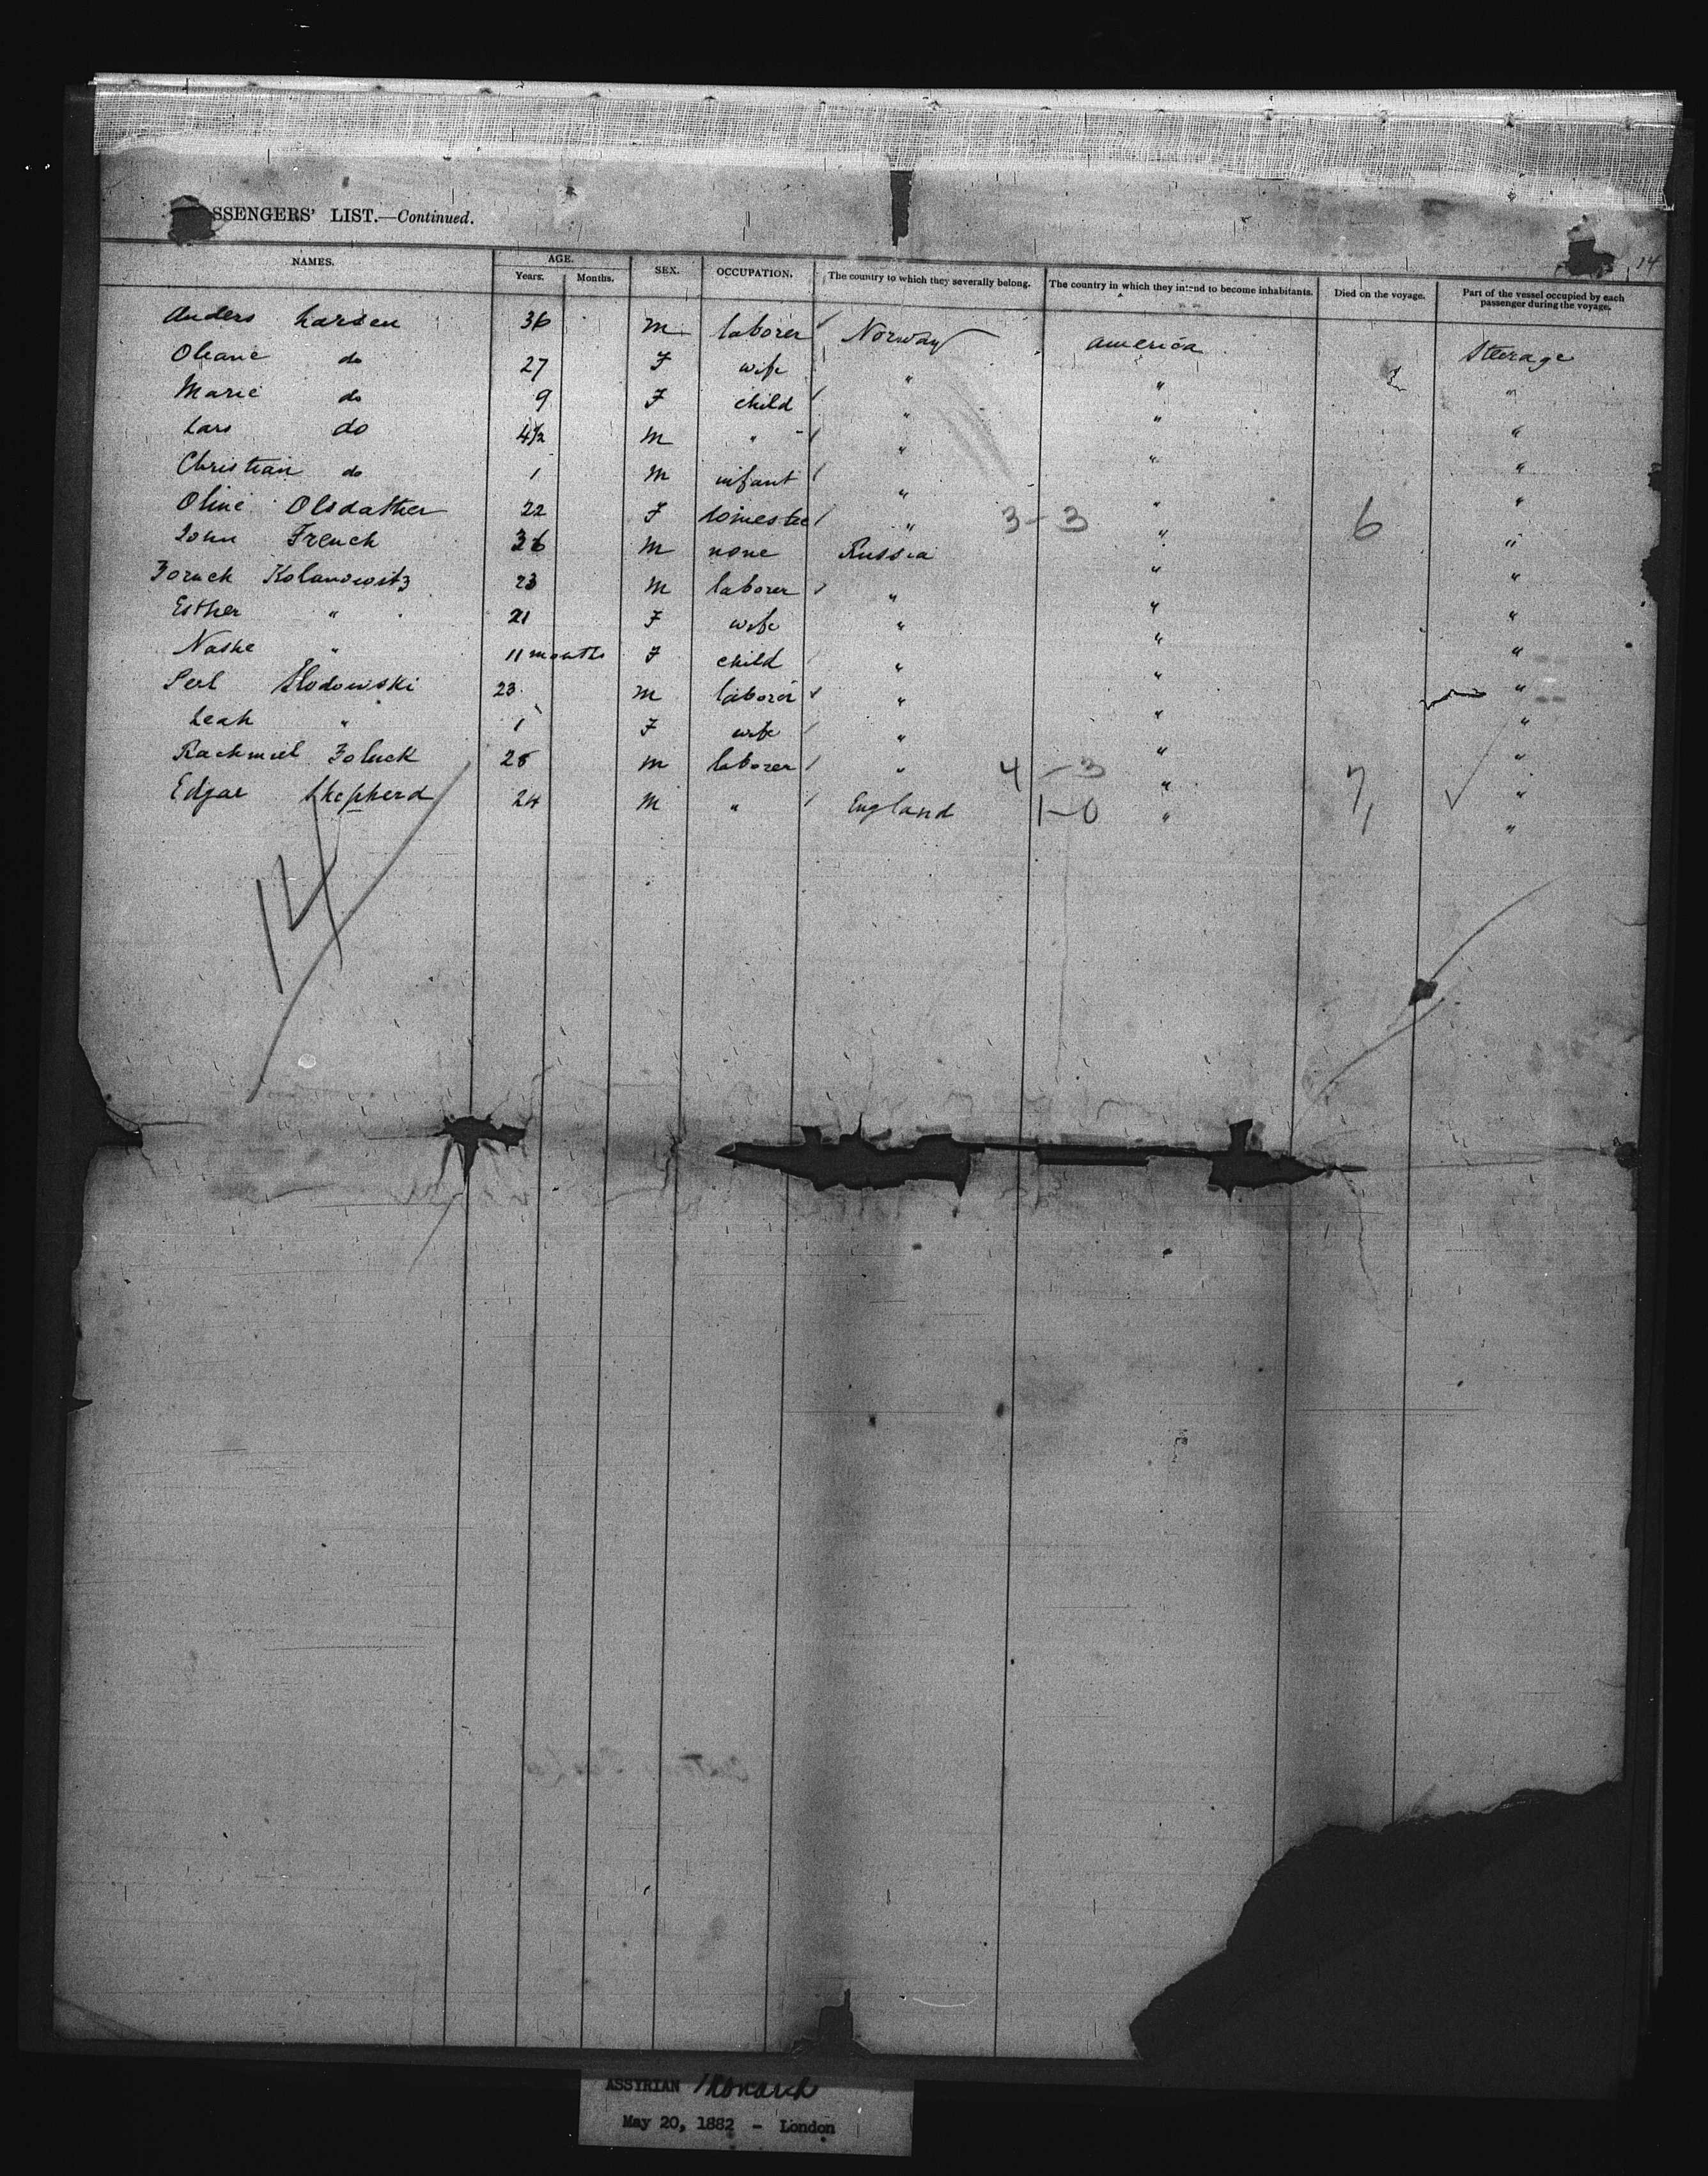 SSENGERS' LIST.—Continued.
14
NAMES. AGE. SEX. OCCUPATION. The country to which they severally belong. The country in which they intend to become inhabitants. Died on the voyage. Part of the vessel occupied by each passenger during the voyage.
Years. Months.
Anders Larsen 36 M laborer Norway America Steerage
Oleane do 27 F wife " " "
Marie do 9 F child " " "
Lars do 4½ M " " " "
Christian do 1 M infant " " "
Oline Olsdather 22 F " 3-3 " 6 "
John French 36 M none Russia " "
Kolanowitz 23 M laborer " " "
Esther " 21 F wife " " "
Nashe " 11 months F child " " "
Slodowski 23 M laborer " " "
Leah " 1 F wife " " "
Rachmiel 25 M laborer " 4-3 " 7 "
Edgar Shepherd 24 M " England 1-0 " 1 "
14
ASSYRIAN Monarch
May 20, 1882 - London